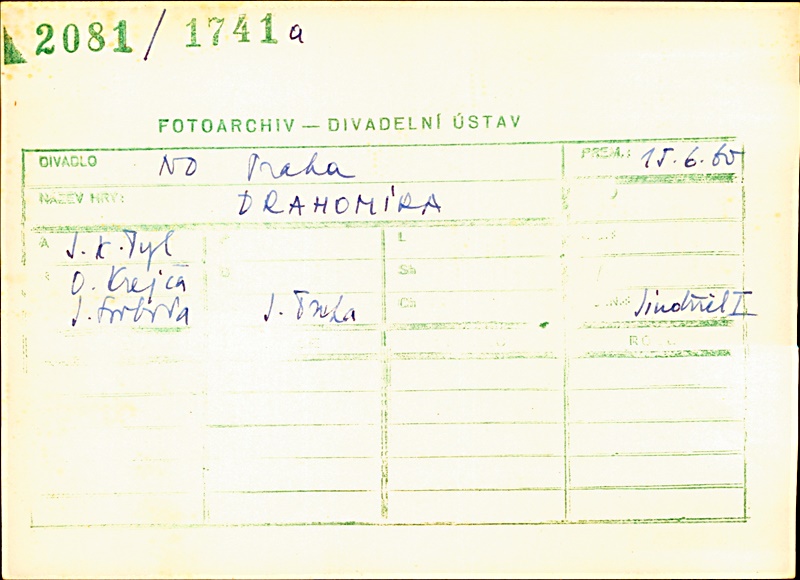 2081 / 1741 a
FOTOARCHIV — DIVADELNÍ ÚSTAV
DIVADLO ND Praha PREM.: 15.6.60
NÁZEV HRY: DRAHOMÍRA
A J. K. Tyl L
O. Krejča Sh
J. Svoboda J. Trnka Ch Jindřich I